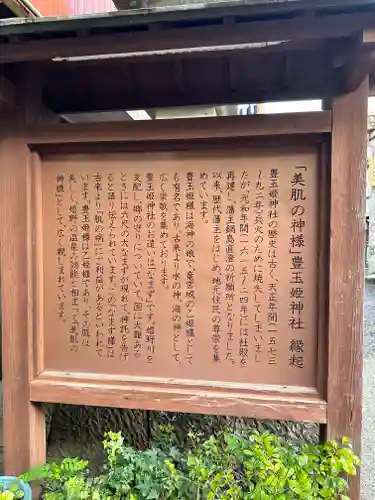 「美肌の神様」豊玉姫神社 縁起
豊玉姫神社の歴史は古く、天正年間(一五七三
〜九二年)兵火のために焼失してしまいまし
たが、元和年間(一六一五〜二四年)には社殿を
再建し、藩主鍋島直澄の祈願所となりました。
以来、歴代藩主をはじめ、地元住民の尊崇を集
めています。
豊玉姫様は海神の娘で、竜宮城の乙姫様として
も有名であり、古来より水の神、海の神として
広く崇敬を集めております。
豊玉姫神社のお遣いは「なまず」です。嬉野川を
支配し、郷の守りについていて、「国に大難ある
ときには六尺の大なまずが現れて、神託を告げ
る」と語り伝えられてます。このなまず様は
古来より「肌の病」にご利益があるといわれて
います。豊玉姫様は乙姫様であり、その肌は
美しく、嬉野の温泉の効能と相まって「美肌の
神様」として、広く親しまれています。